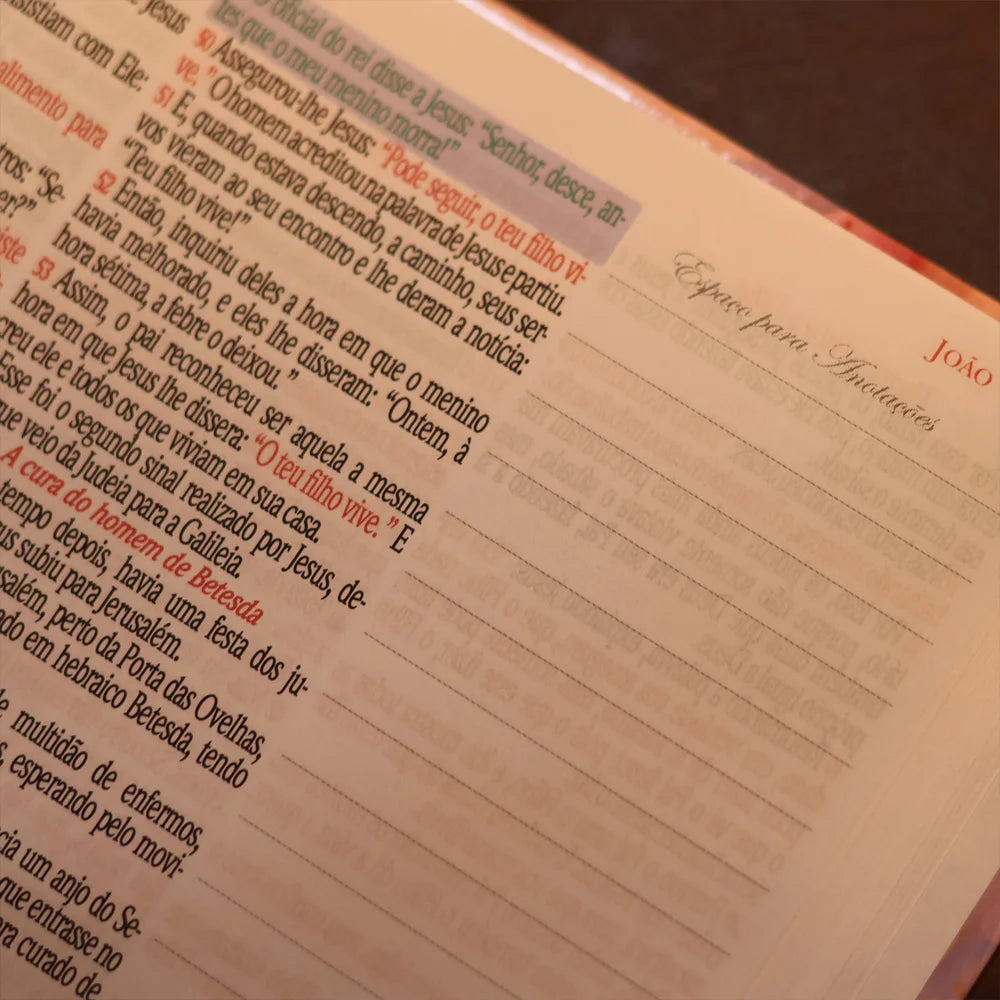 JOÃO
Espaço para Anotações
Jesus
sistiam com Ele:
alimento para
tros: "Se-
er?"
oficial do rei disse a Jesus: "Senhor, desce, an-
tes que o meu menino morra!"
50 Assegurou-lhe Jesus: "Pode seguir, o teu filho vi-
ve." O homem acreditou na palavra de Jesus e partiu.
51 E, quando estava descendo, a caminho, seus ser-
vos vieram ao seu encontro e lhe deram a notícia:
"Teu filho vive!"
52 Então, inquiriu deles a hora em que o menino
havia melhorado, e eles lhe disseram: "Ontem, à
hora sétima, a febre o deixou."
53 Assim, o pai reconheceu ser aquela a mesma
hora em que Jesus lhe dissera: "O teu filho vive." E
creu ele e todos os que viviam em sua casa.
Esse foi o segundo sinal realizado por Jesus, de-
que veio da Judeia para a Galileia.
A cura do homem de Betesda
tempo depois, havia uma festa dos ju-
us subiu para Jerusalém.
salém, perto da Porta das Ovelhas,
ado em hebraico Betesda, tendo
e multidão de enfermos,
s, esperando pelo movi-
cia um anjo do Se-
que entrasse no
ra curado de